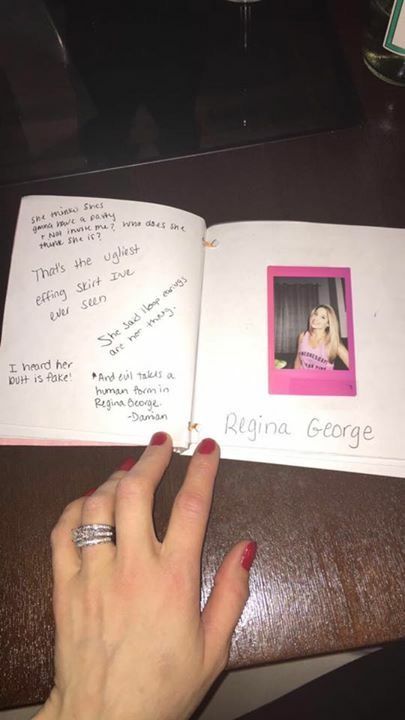 she thinks shes
gonna have a party
+ Not invite me? Who does she
think she is?
That's the ugliest
effing skirt I've
ever seen
She said Hoop earings
are her thing.
I heard her
butt is fake!
*And evil takes a
human form in
Regina George.
-Damian
Regina George